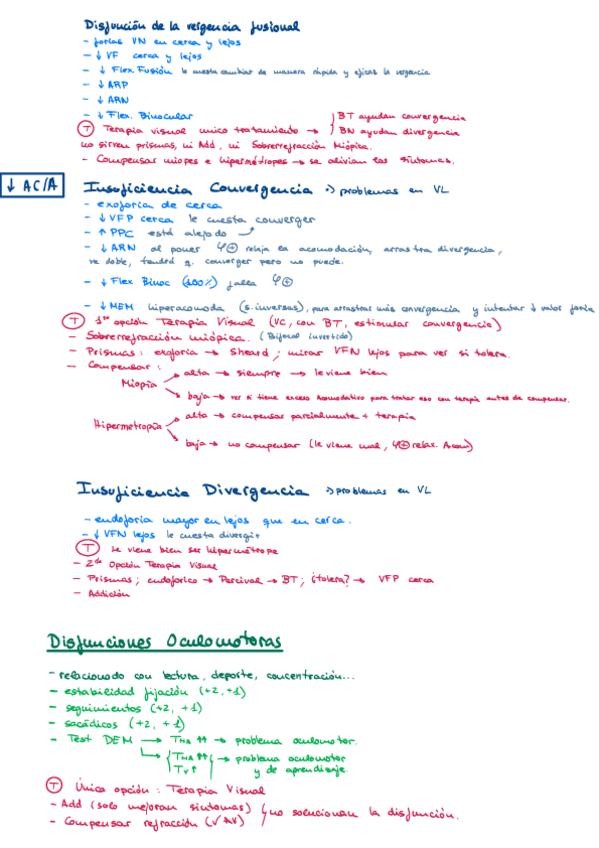 Disfunción de la vergencia fusional
- forias VN en cerca y lejos
- ↓ VF cerca y lejos
- ↓ Flex Fusión le cuesta cambiar de manera rápida y eficaz la vergencia
- ↓ ARP
- ↓ ARN
- ↓ Flex. Binocular
Ⓣ Terapia visual unico tratamiento → BT ayudan convergencia
BN ayudan divergencia
no sirven prismas, ni Add, ni Sobrerrefracción Miópica.
- Compensar miopes e hipermétropes → se alivian los síntomas.
↓ AC/A
Insuficiencia Convergencia → problemas en VL
- exoforia de cerca
- ↓ VFP cerca le cuesta converger
- ↑ PPC está alejado
- ↓ ARN al poner ⊕ relaja la acomodación, arrastra divergencia,
ve doble, tendrá q. converger pero no puede.
- ↓ Flex Binoc (100%) falla ⊕
- ↓ MEM hiperacomoda (s. inversas), para arrastrar más convergencia y intentar ↓ valor foria
Ⓣ 1ª opción Terapia Visual (VC, con BT, estimular convergencia)
- Sobrerrefracción miópica. (Bifocal invertido)
- Prismas: exoforia → Sheard ; mirar VFN lejos para ver si tolera.
- Compensar:
Miopía → alta → siempre → le viene bien
→ baja → ver si tiene exceso Acomodativo para tratar eso con terapia antes de compensar.
Hipermetropía → alta → compensar parcialmente + terapia
→ baja → no compensar (le viene mal, ⊕ relax. Acom)
Insuficiencia Divergencia → problemas en VL
- endoforia mayor en lejos que en cerca.
- ↓ VFN lejos le cuesta divergir
Ⓣ le viene bien ser hipermétrope
- 2ª Opción Terapia Visual
- Prismas; endoforico → Percival → BT; ¿tolera? → VFP cerca
- Addición
Disfunciones Oculomotoras
- relacionado con lectura, deporte, concentración...
- estabilidad fijación (+2, +1)
- seguimientos (+2, +1)
- sacádicos (+2, +1)
- Test DEM → THA ↑↑ → problema oculomotor.
→ THA ↑↑ TV ↑ → problema oculomotor
y de aprendizaje.
Ⓣ Única opción: Terapia Visual
- Add (solo mejoran sintomas)
- Compensar refracción (√ AV) no solucionan la disfunción.